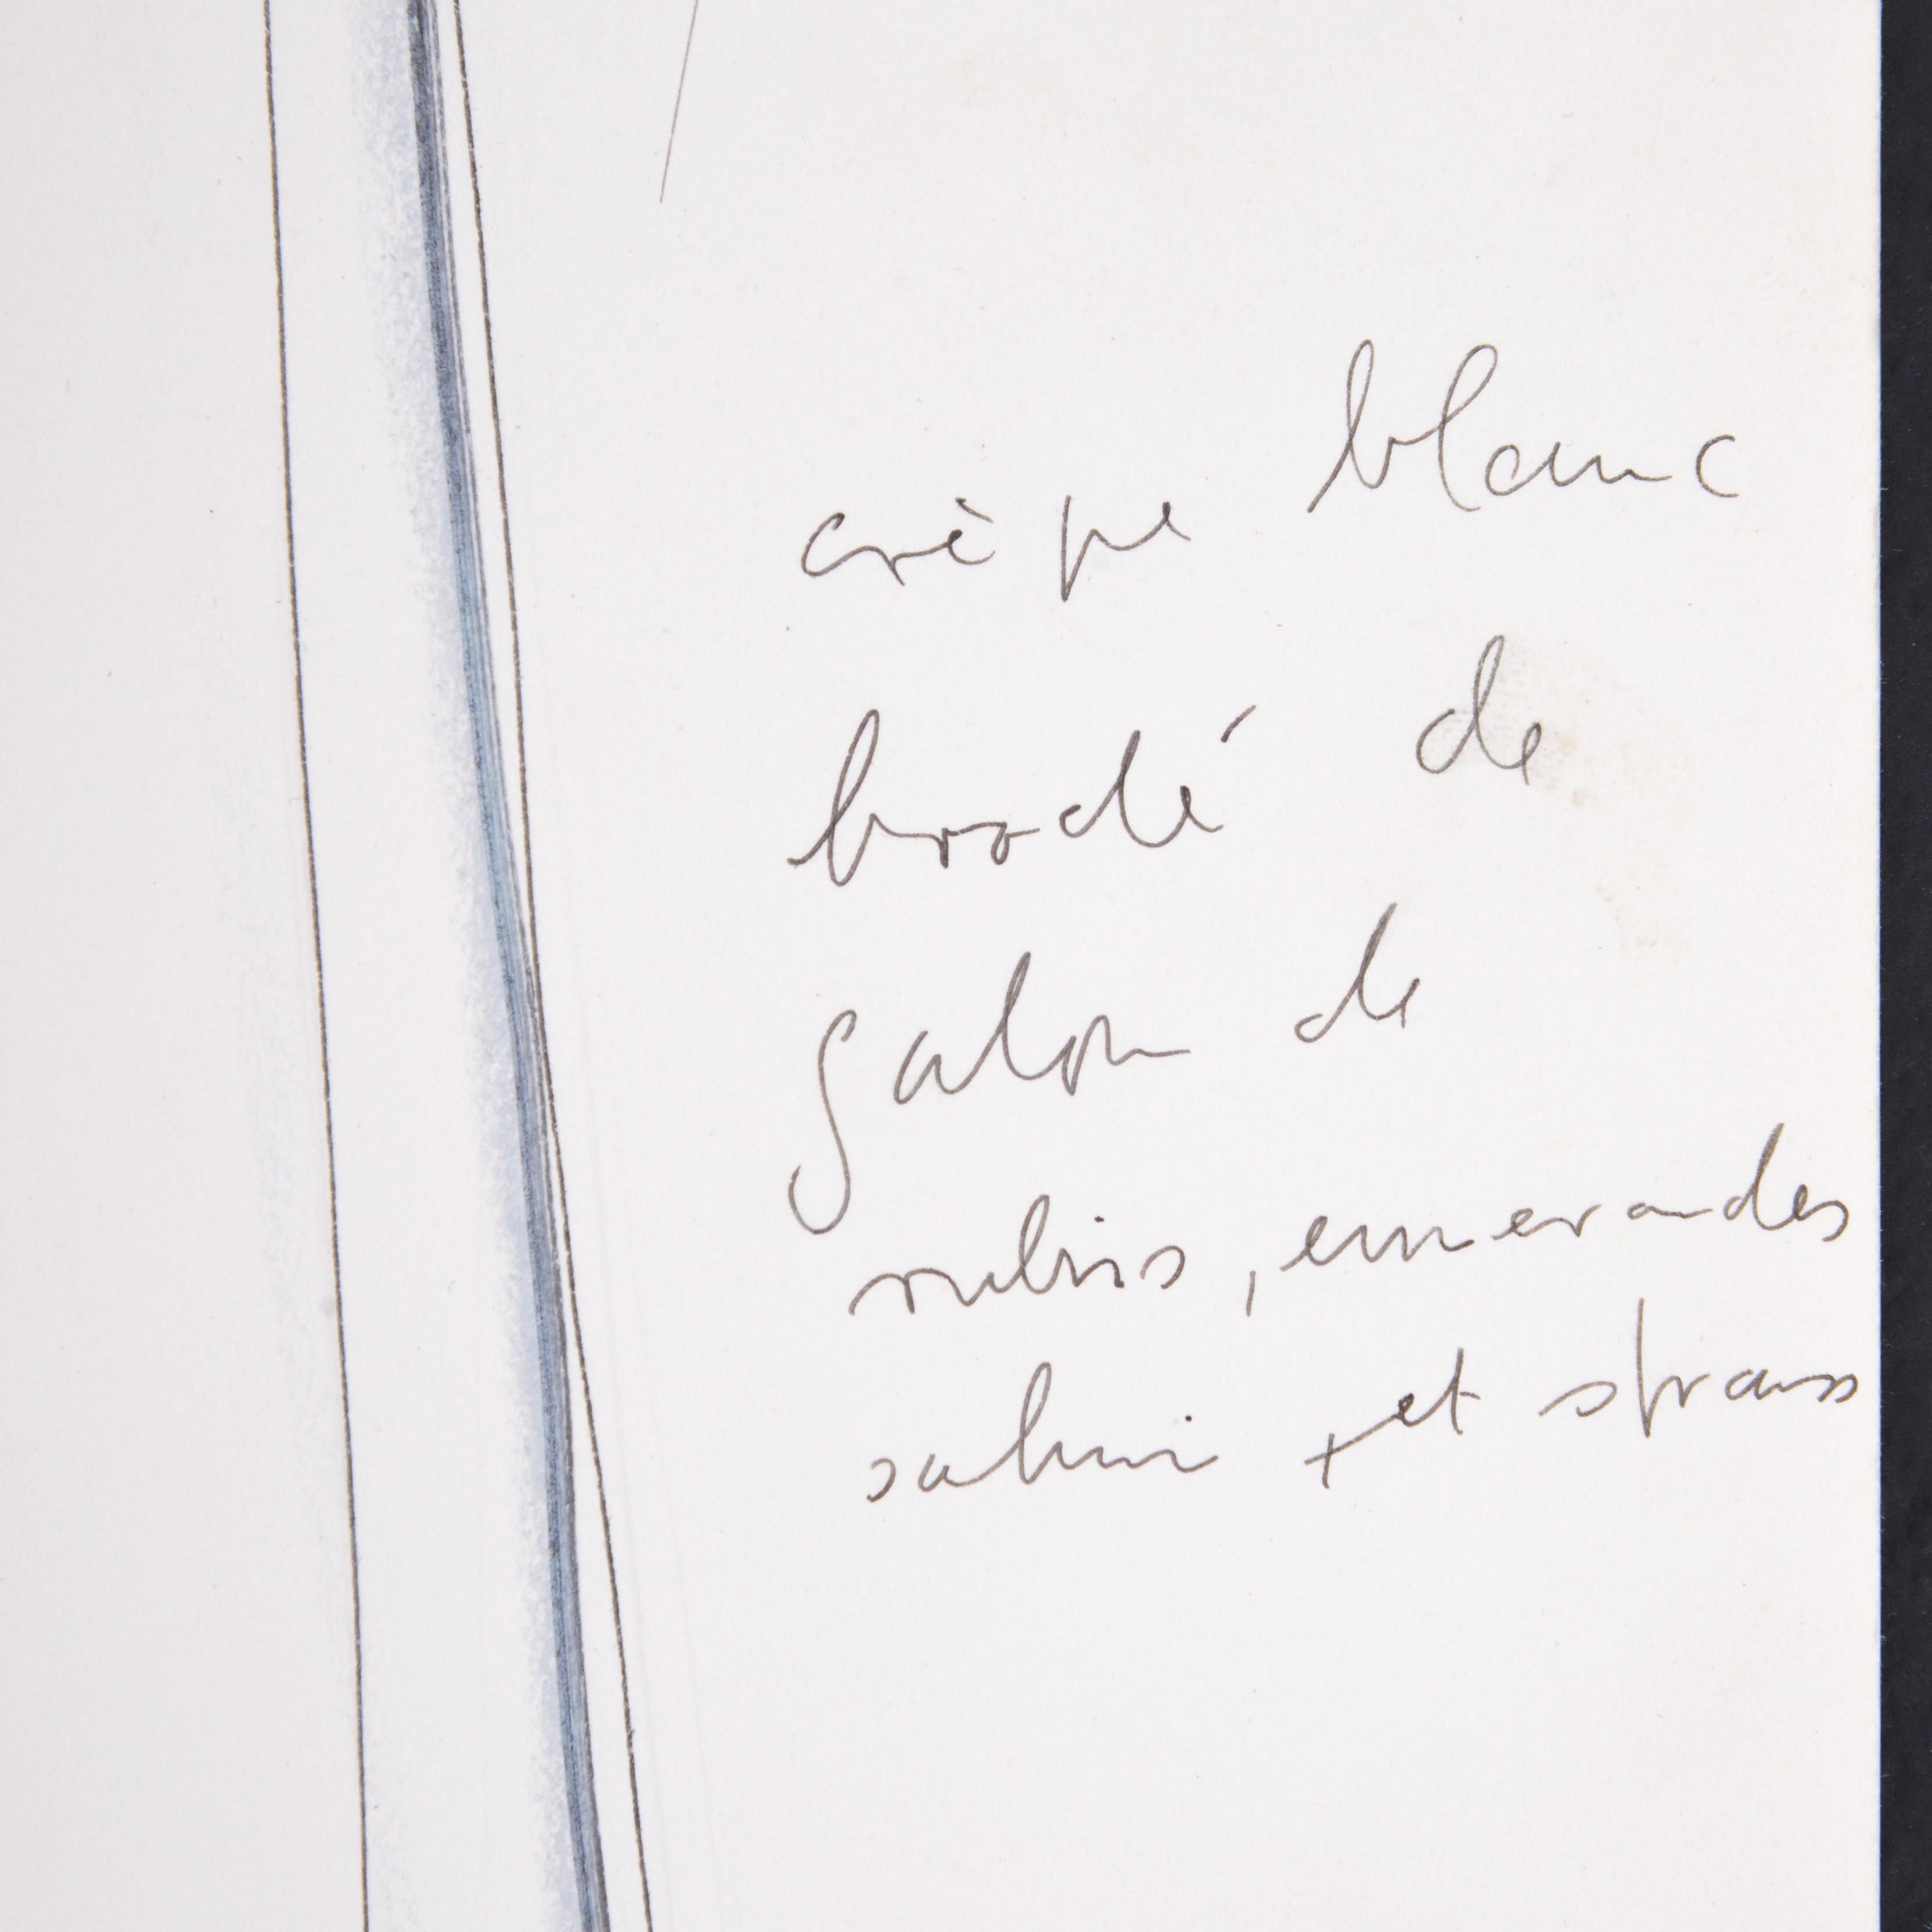 crèpe blanc
brodé de
galon de
rubis, emerandes
et strass